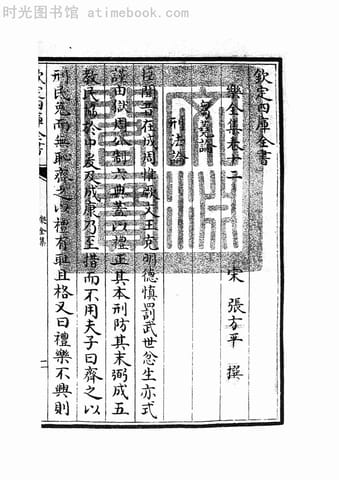 时光图书馆 www.atimebook.com
欽定四庫全書
樂全集卷十二
宋 張方平 撰
芻蕘論
刑法論
臣聞昔在成周惟厥文王克明德慎罰武世忿生亦式
謹由獄周公制六典蓋以禮正其本刑防其末弼成五
教民協於中爰及成康乃至措而不用夫子曰齊之以
刑民免而無恥齊之以禮有恥且格又曰禮樂不興則
欽定四庫全書
樂全集